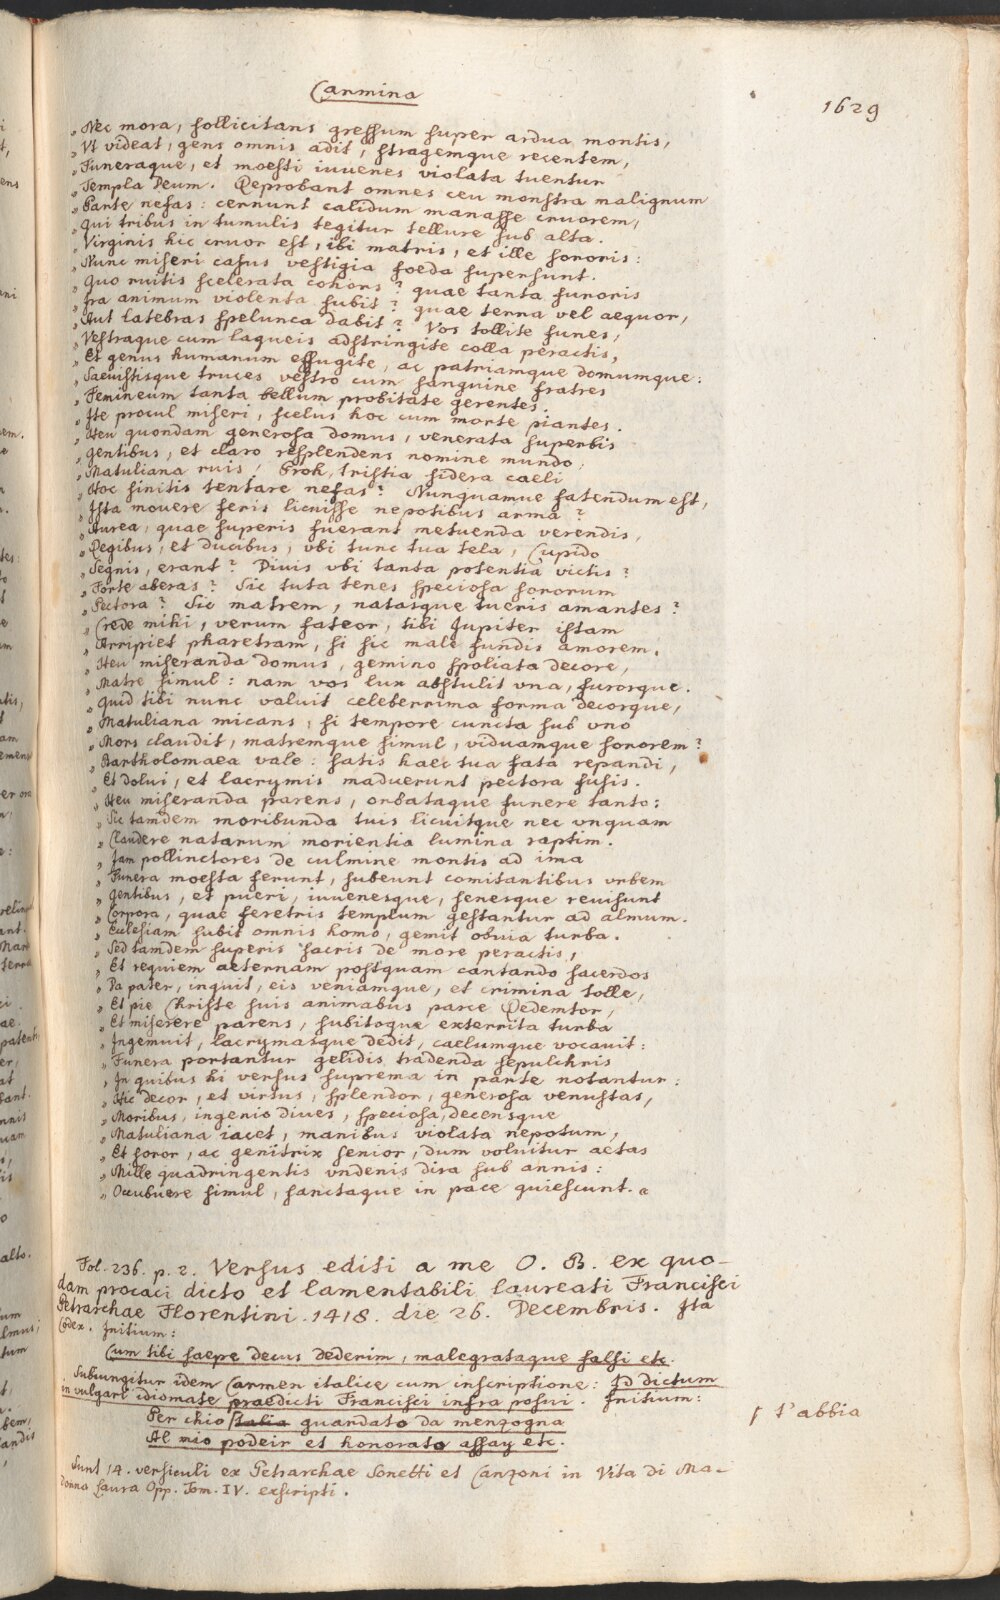 Carmina
1629
„ Nec mora, sollicitans gressum super ardua montis,
„ Vt videat, gens omnis adit, stragemque recentem,
„ Funeraque, et moesti iuuenes violata tuentur
„ Templa Deum. Reprobant omnes ceu monstra malignum
„ Parte nefas: cernunt calidum manasse cruorem,
„ Qui tribus in tumulis tegitur tellure sub alta.
„ Virginis hic cruor est, ibi matris, et ille sororis:
„ Nunc miseri casus vestigia foeda supersunt.
„ Quo ruitis scelerata cohors? quae tanta furoris
„ Ira animum violenta subit? quae terra vel aequor,
„ Aut latebras spelunca dabit? Vos tollite funes,
„ Vestraque cum laqueis adstringite colla peractis,
„ Et genus humanum effugite, ac patriamque domumque:
„ Saeuistisque truces vestro cum sanguine fratres
„ Femineum tanta bellum probitate gerentes.
„ Ite procul miseri, scelus hoc cum morte piantes.
„ Heu quondam generosa domus, venerata superbis
„ Gentibus, et claro resplendens nomine mundo,
„ Matuliana ruis! Proh, tristia sidera caeli
„ Hoc sinitis tentare nefas? Nunquamue fatendum est,
„ Ista mouere feris licuisse nepotibus arma?
„ Aurea, quae superis fuerant metuenda verendis,
„ Regibus, et ducibus, vbi tunc tua tela, Cupido
„ Segnis, erant? Diuis vbi tanta potentia victis?
„ Forte aberas? Sic tuta tenes speciosa sororum
„ Pectora? Sic matrem, natasque tueris amantes?
„ Crede mihi, verum fateor, tibi Jupiter istam
„ Arripiet pharetram, si sic male fundis amorem.
„ Heu miseranda domus, gemino spoliata decore,
„ Matre simul: nam vos lux abstulit vna, furorque.
„ Quid tibi nunc valuit celeberrima forma decorque,
„ Matuliana micans, si tempore cuncta sub vno
„ Mors claudit, matremque simul, viduamque sororem?
„ Bartholomaea vale: satis haec tua fata rependi,
„ Et dolui, et lacrymis maduerunt pectora fusis.
„ Heu miseranda parens, orbataque funere tanto:
„ Sic tamdem moribunda tuis licuitque nec vnquam
„ Claudere natarum morientia lumina raptim.
„ Jam pollinctores de culmine montis ad ima
„ Funera moesta ferunt, subeunt comitantibus vrbem
„ Gentibus, et pueri, iuuenesque, senesque reuisunt
„ Corpora, quae feretris templum gestantur ad almum.
„ Ecclesiam subit omnis homo, gemit obuia turba.
„ Sed tamdem superis sacris de more peractis,
„ Et requiem aeternam postquam cantando sacerdos
„ Da pater, inquit, eis veniamque, et crimina tolle,
„ Et pie Christe suis animabus parce Redemtor,
„ Et miserere parens, subitoque exterrita turba
„ Ingemuit, lacrymasque dedit, caelumque vocauit:
„ Funera portantur gelidis tradenda sepulchris
„ In quibus hi versus suprema in parte notantur:
„ Hic decor, et virtus, splendor, generosa venustas,
„ Moribus, ingenio diues, speciosa, decensque
„ Matuliana iacet, manibus violata nepotum,
„ Et soror, ac genitrix senior, dum voluitur aetas
„ Mille quadringentis vndenis dira sub annis:
„ Occubuere simul, sanctaque in pace quiescunt.
Fol. 236. p. 2. Versus editi a me O. B. ex quo-
dam procaci dicto et lamentabili laureati Francisci
Petrarchae Florentini. 1418. die 26. Decembris. Ita
Codex. Initium:
Cum tibi saepe decus dederim, malegrataque falsi etc.
Subiungitur idem Carmen italice cum inscriptione: Id dictum
in vulgari idiomate praedicti Francisci infra posui. Initium:
Per chio stalia guardato da menzogna
ſ t'abbia
Al mio podeir et honorato assay etc.
Sunt 14. versiculi ex Petrarchae Sonetti et Canzoni in Vita di Ma-
donna Laura Opp. Tom. IV. exscripti.